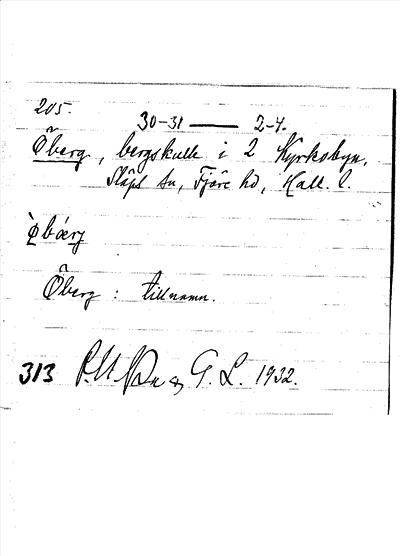 205.
30-31 — 2-4.
Öberg, bergskulle i 2 Kyrkobyn,
Släps sn, Fjäre hd, Hall. l.
Öberg : tillnamn.
313 G. L. 1932.